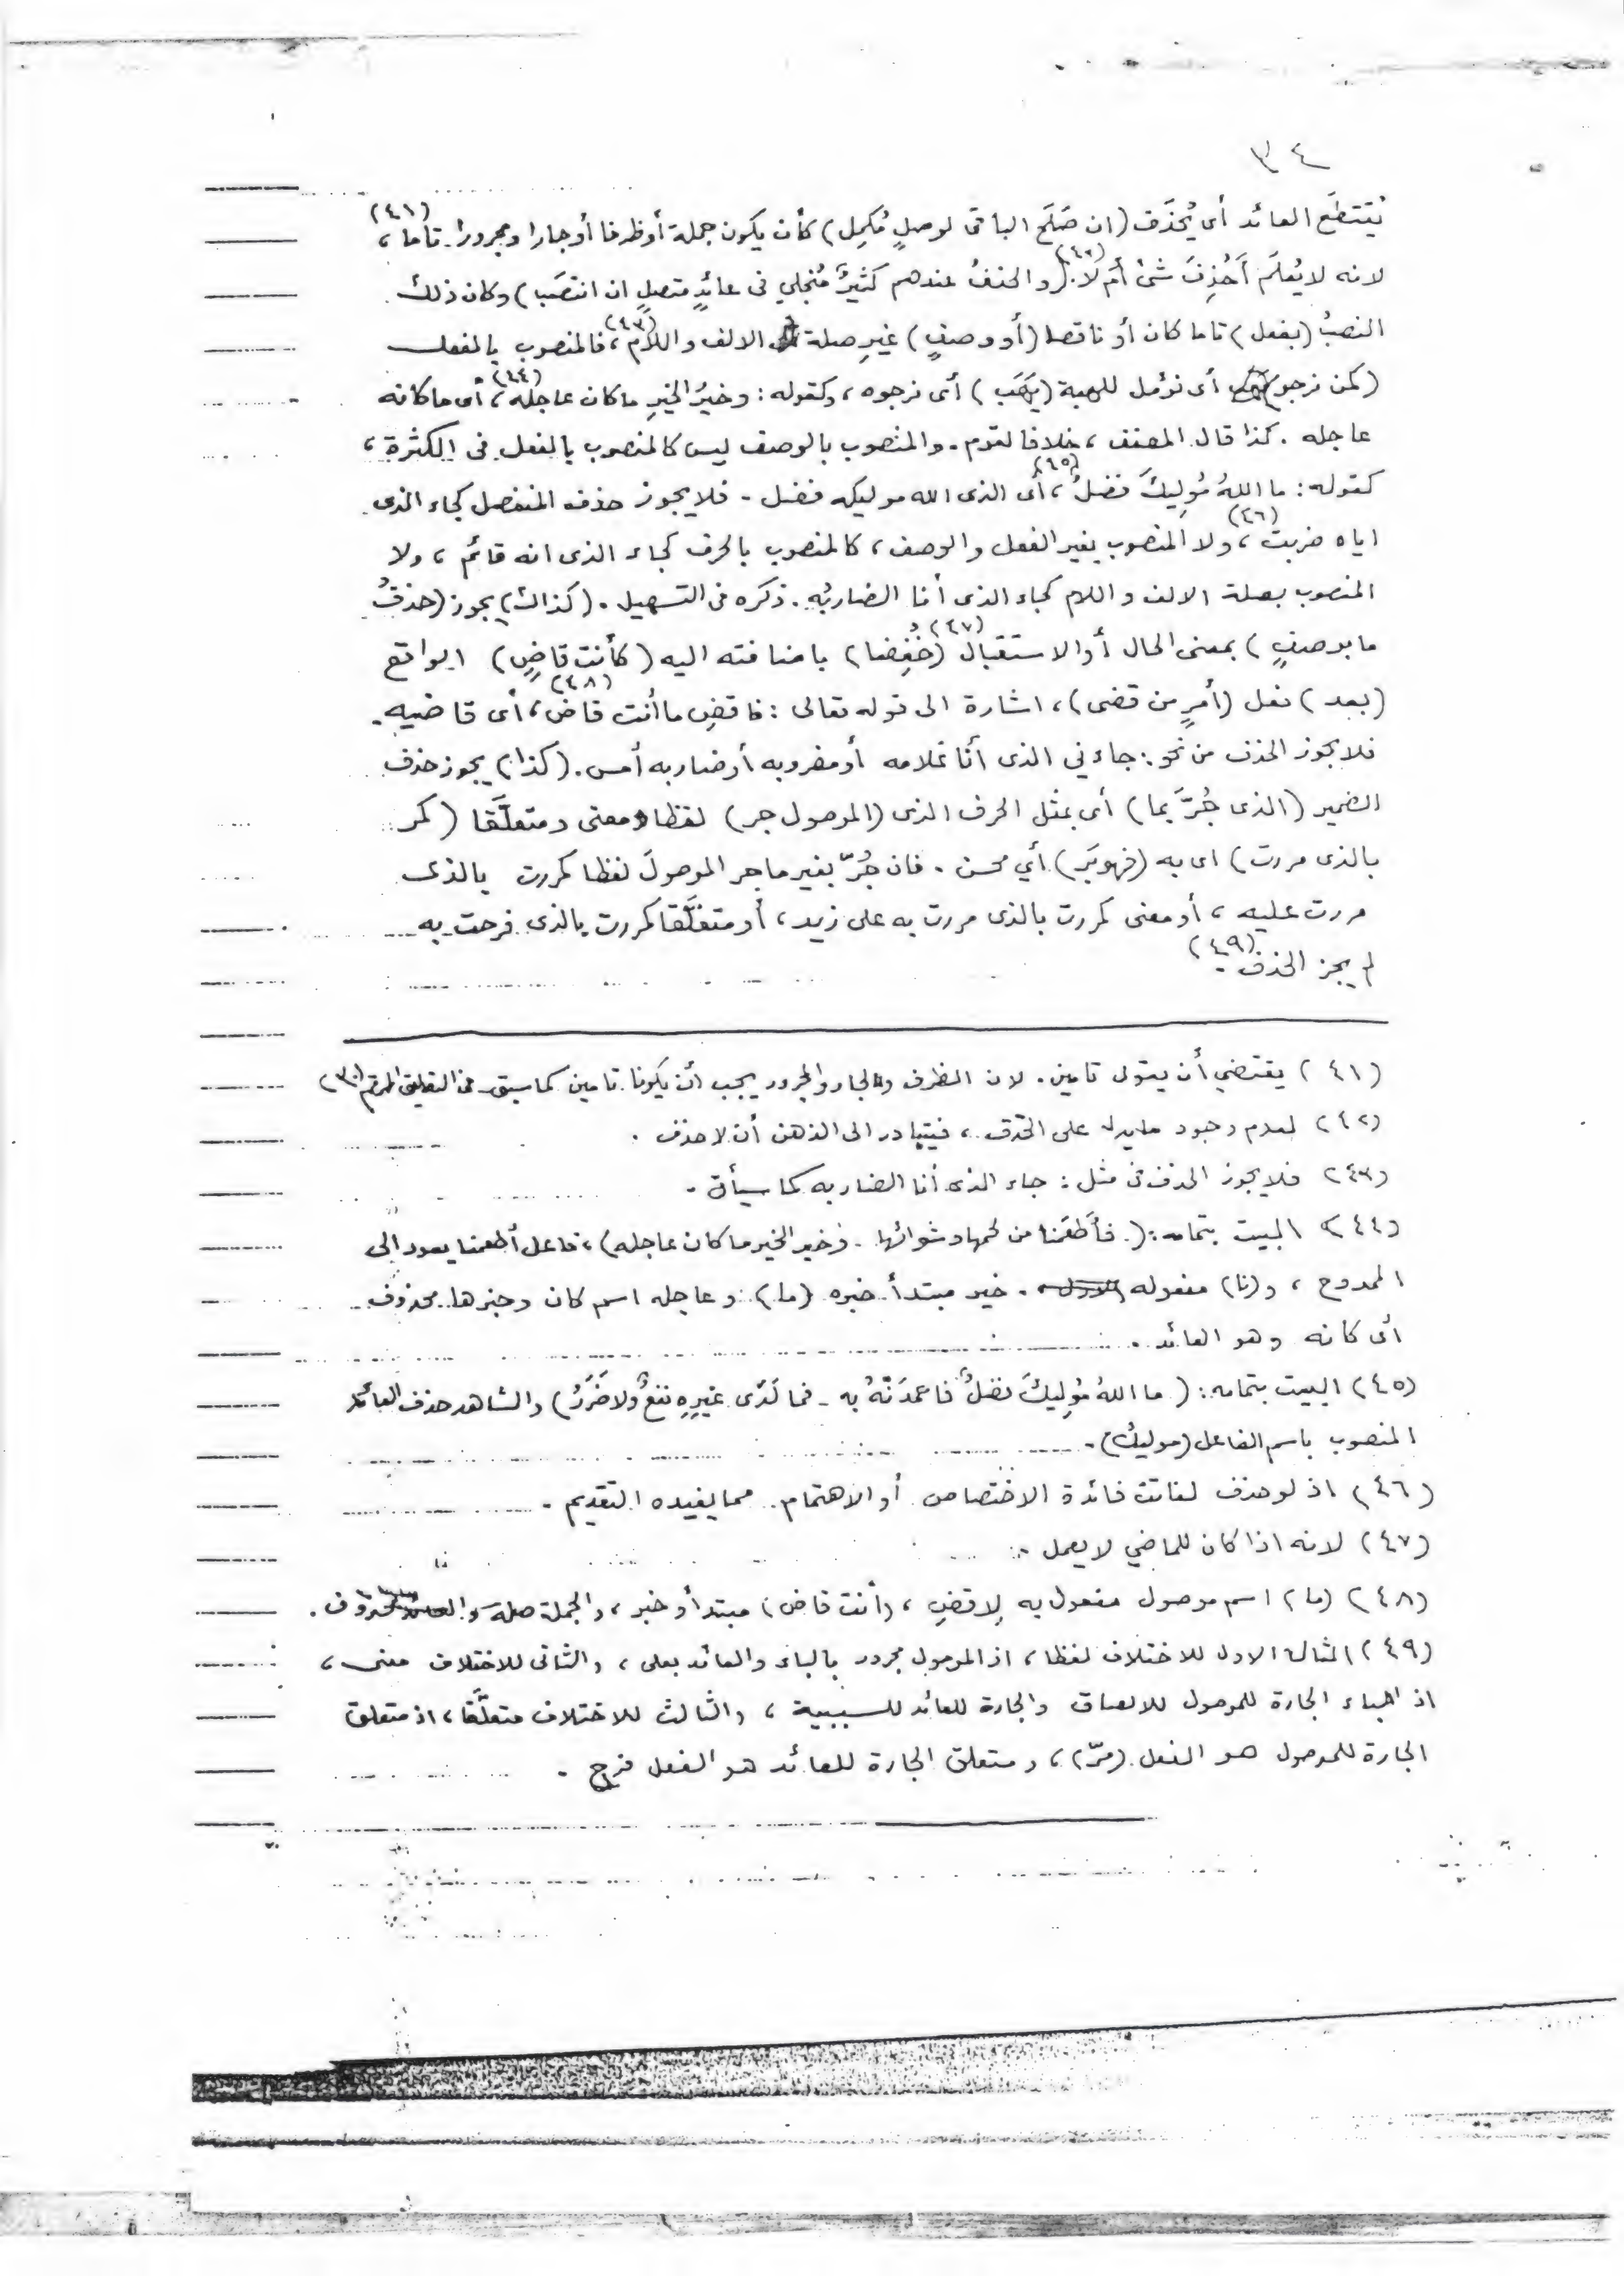 ٣٤
يُقتطَع العائد أى يُحذَف (ان صَلَحَ الباقى لوصلٍ مُكمِل) كأن يكون جملة أو ظرفا أو جارا ومجرورا تاما (٤١)،
لانه لا يُعلَم أَحُذِفَ شئ أم لا (٤٢). (والحذفُ عندهم كثيرٌ مُنجلي فى عائدٍ متصلٍ ان انتصَب) وكان ذلك
النصبُ (بفعل) تاما كان أو ناقصا (أو وصفٍ) غيرِ صلة الالف واللام (٤٣)، فالمنصوب بالفعل
(كمن نرجو) أى نؤمل للهبة (يَهَب) أى نرجوه، وكقوله: وخيرُ الخيرِ ما كان عاجله (٤٤)، أى ما كانه
عاجله. كذا قال المصنف، خلافا لقوم. والمنصوب بالوصف ليس كالمنصوب بالفعل فى الكثرة،
كقوله: ما اللهُ مُوليكَ فضلٌ (٤٥)، أى الذى الله موليكه فضل - فلا يجوز حذف المنفصل كجاء الذى
اياه ضربت (٤٦)، ولا المنصوب بغير الفعل والوصف، كالمنصوب بالحرف كجاء الذى انه قائم، ولا
المنصوب بصلة الالف واللام كجاء الذى أنا الضاربُه. ذكره فى التسهيل. (كذاك) يجوز (حذفُ
ما بوصفٍ) بمعنى الحال أو الاستقبال (٤٧) (خُفِضا) باضافته اليه (كأنت قاضٍ) الواقع
(بعد) فعل (أمرٍ من قضى)، اشارة الى قوله تعالى: فاقضِ ما أنت قاض (٤٨)، أى قاضيه.
فلا يجوز الحذف من نحو: جاءني الذى أنا غلامه أو مضروبه أو ضاربه أمس. (كذا) يجوز حذف
الضمير (الذى جُرَّ بما) أى بمثل الحرف الذى (الموصول جر) لفظا ومعنى ومتعلَّقا (كمر
بالذى مررت) اى به (فهو بَر) أي محسن. فان جُرّ بغير ما جر الموصولَ لفظا كمررت بالذى
مررت عليه، أو معنى كمررت بالذى مررت به على زيد، أو متعلَّقا كمررت بالذى فرحت به
لم يجز الحذف (٤٩).
(٤١) يقتضي أن يقول تامين. لان الظرف والجار والمجرور يجب أن يكونا تامين كما سبق فى التعليق المرقم (٣٠)
(٤٢) لعدم وجود ما يدل على الحذف، فيتبادر الى الذهن أن لا حذف.
(٤٣) فلا يجوز الحذف فى مثل: جاء الذى أنا الضاربه كما سيأتى.
(٤٤) البيت بتمامه: (فأَطعَمَنا من لحمها وشوائها - وخير الخير ما كان عاجله)، فاعل أطعمنا يعود إلى
الممدوح، و(نا) مفعوله. خير مبتدأ خبره (ما) وعاجله اسم كان وخبرها محذوف
أى كانه وهو العائد.
(٤٥) البيت بتمامه: (ما اللهُ مُوليكَ فضلٌ فاحمدَنْهُ به - فما لَدَى غيرِهِ نفعٌ ولا ضَرَرُ) والشاهد حذف العائد
المنصوب باسم الفاعل (موليك).
(٤٦) اذ لو حذف لفاتت فائدة الاختصاص أو الاهتمام مما يفيده التقديم.
(٤٧) لانه اذا كان للماضي لا يعمل.
(٤٨) (ما) اسم موصول مفعول به لاقضِ، (أنت قاض) مبتدأ وخبر، والجملة صلة والعائد محذوف.
(٤٩) المثال الاول للاختلاف لفظا، اذ الموصول مجرور بالباء والعائد بعلى، والثانى للاختلاف معنى،
اذ الباء الجارة للموصول للالصاق والجارة للعائد للسببية، والثالث للاختلاف متعلَّقا، اذ متعلق
الجارة للموصول هو الفعل (مرّ)، ومتعلق الجارة للعائد هو الفعل فرح.